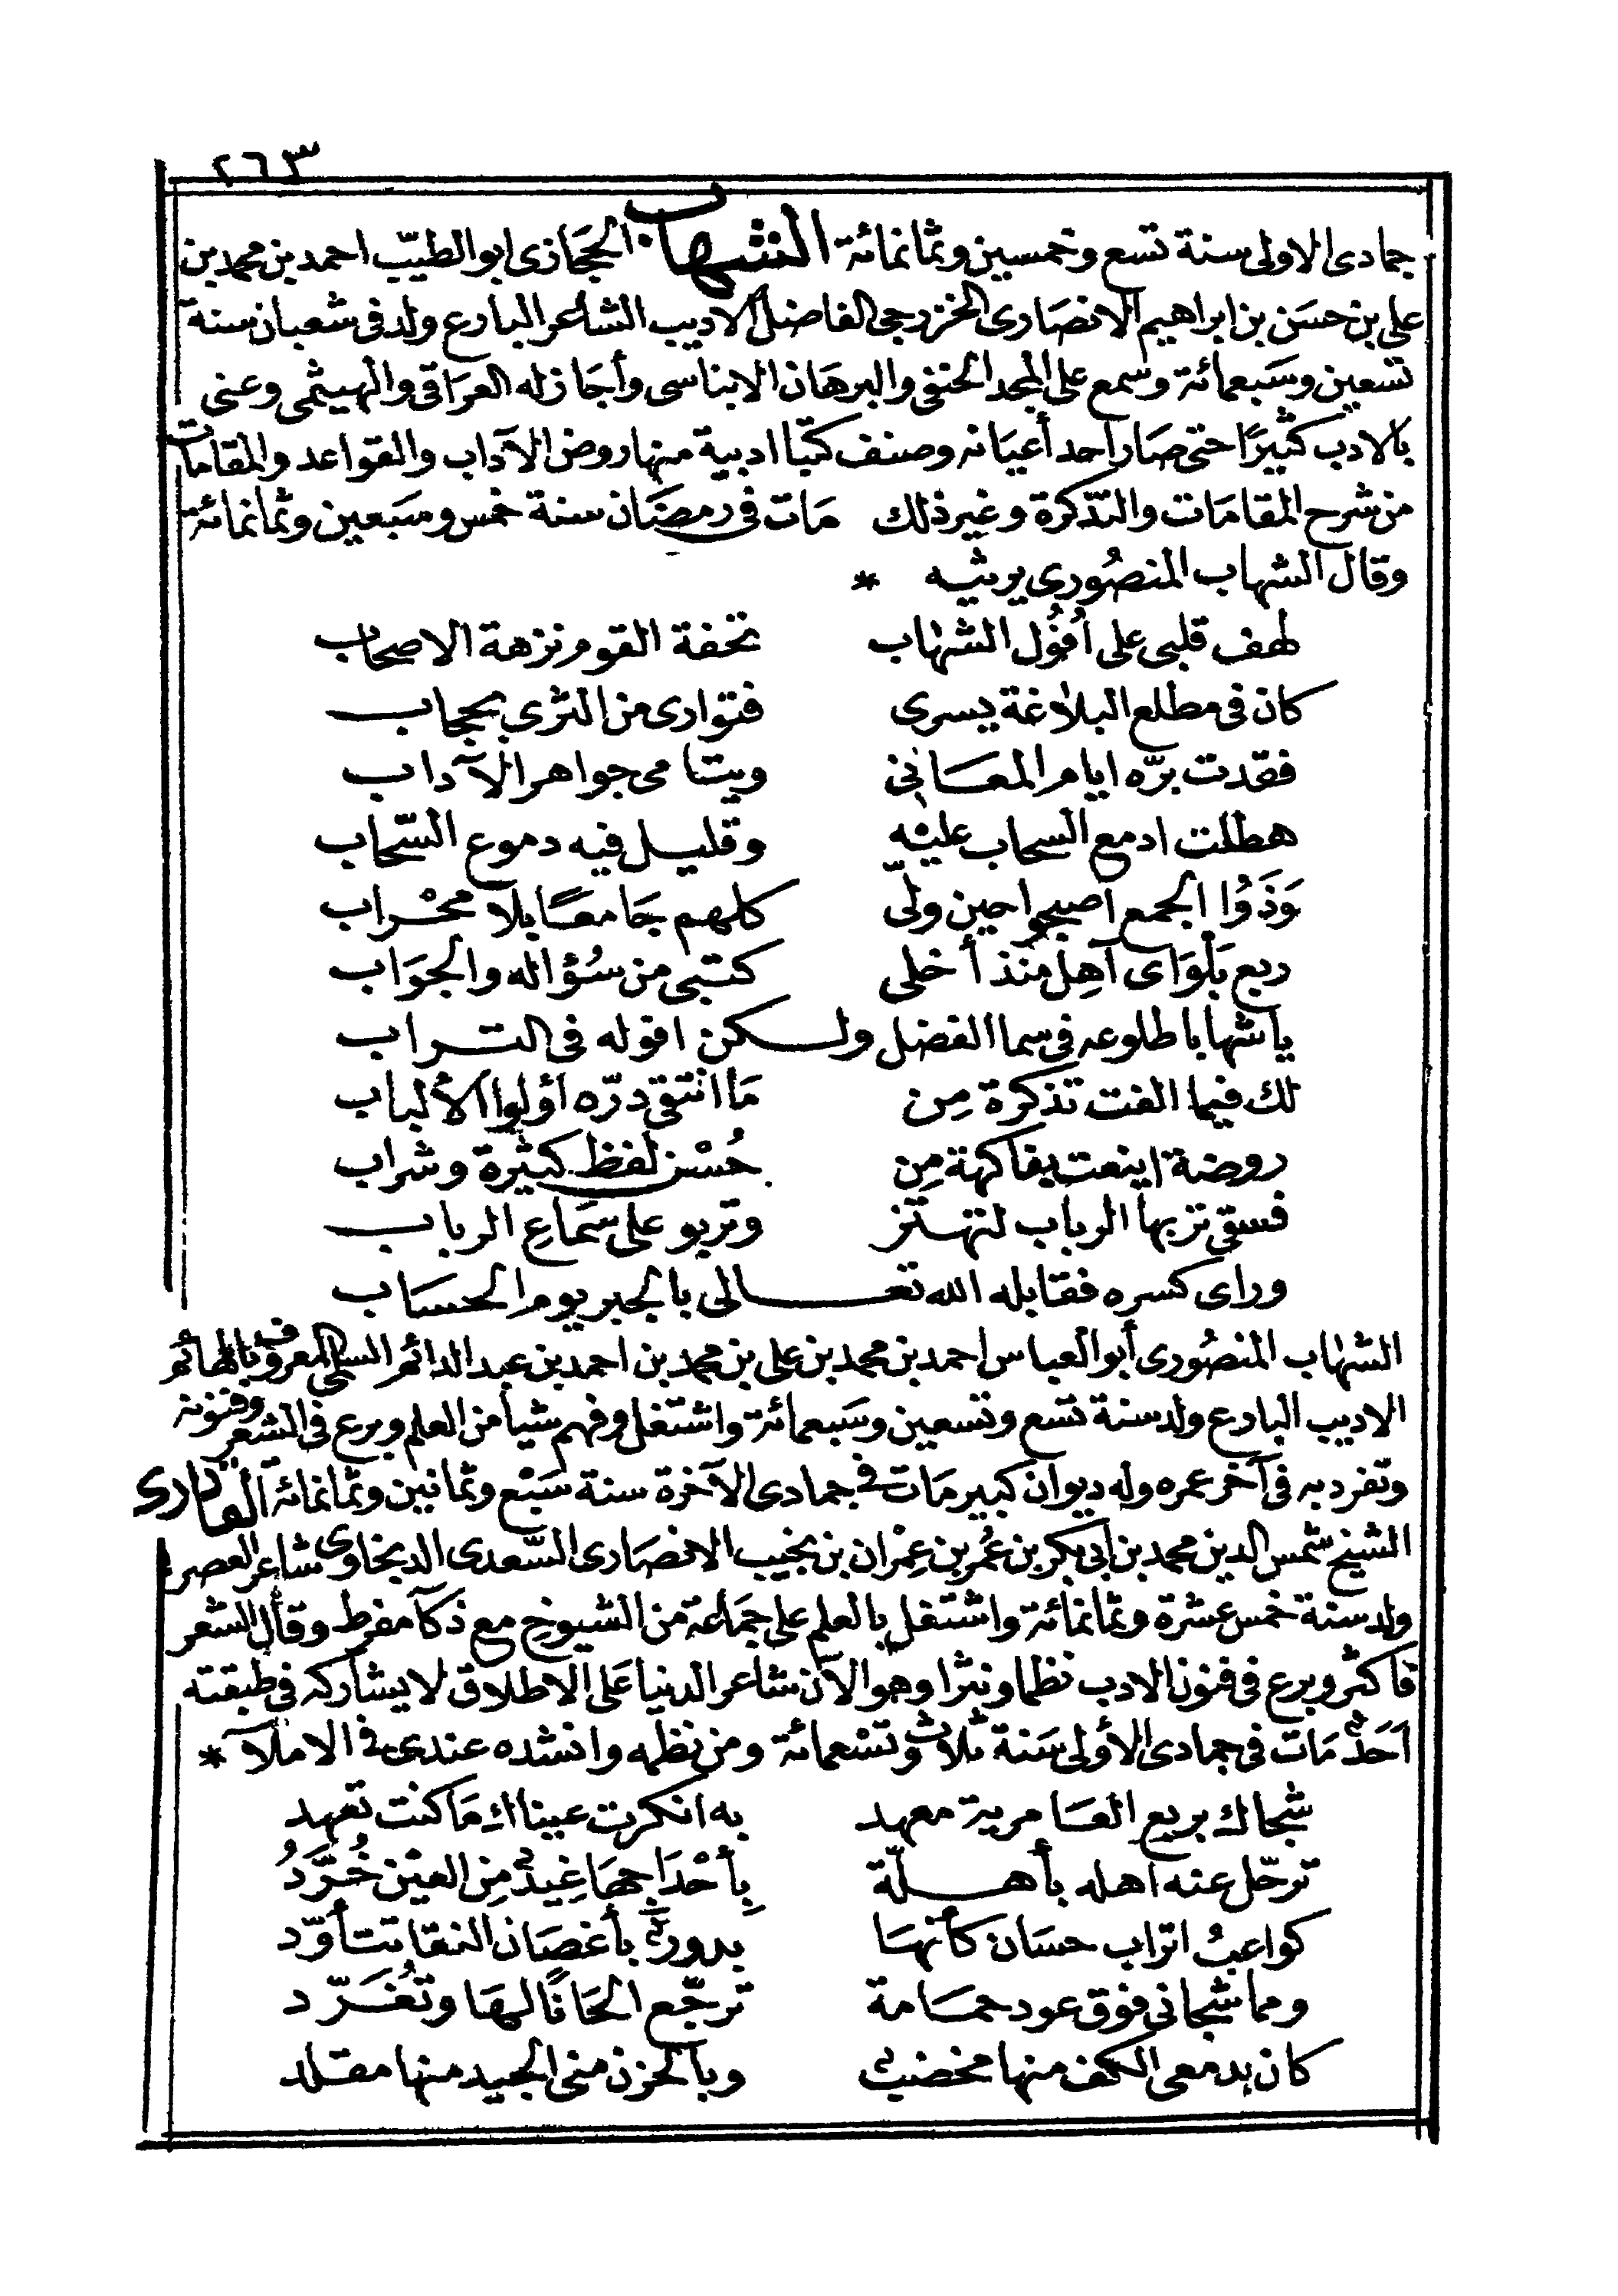 ٢٦٣
جمادى الاولى سنة تسع وخمسين وثمانمائة الشهاب الحجازى ابو الطيّب احمد بن محمد بن
على بن حسَن بن ابراهيم الانصارى الخزرجى الفاضل الاديب الشاعر البارع ولد فى شعبان سنة
تسعين وسَبعمائة وسمع على المجد الحنفى والبرهان الابناسى وأجاز له العرَاقى والهيثمى وعنى
بالادب كثيرًا حتى صَار احد أعيَانه وصنف كتبا ادبية منها روض الآداب والقواعد والمقامات
من شرح المقامَات والتذكرة وغير ذلك مَات فى رمضَان سنة خمس وسَبعين وثمانمائة
وقال الشهاب المنصُورى يرثيه *
لهف قلبى على اُفُول الشهاب تحفة القوم نزهة الاصحاب
كان فى مطلع البلاغة يسرى فتوارى من الثرى بحجاب
فقدت برّه ايامى المعَانى ويتامى جواهر الآداب
هطلت ادمع السحاب عليْه وقليل فيه دموع السّحاب
وَذَوُوا الجمع اصبحوا حين ولّى كلهم جَامعًا بلا محْراب
ربع بَلوَاى آهِل منذ أخلى كتبى من سُؤاله والجوَاب
يا شهابا طلوعه فى سما الفضل ولكن افوله فى التراب
لك فيما الفت تذكرة مِن مَا انتقى درّه اُولوا الألباب
روضة اينعت بفاكهة مِن حُسْن لفظ كثيرة وشراب
فسقى تربها الرباب لتهتز وتربو على سَمَاعِ الرباب
وراى كسره فقابله الله تعالى بالجبر يوم الحسَاب
الشهاب المنصُورى أبو العباس احمد بن محمد بن على بن محمد بن احمد بن عبد الدائم السلمى المعروف بالهائم
الاديب البارع ولد سنة تسع وتسعين وسَبعمائة واشتغل وفهم شيأ من العلم وبرع فى الشعر وفنونه
وتفرد به فى آخر عمره وله ديوان كبير مَات فى جمادى الآخرة سنة سَبْع وثمانين وثمانمائة القادرى
الشيخ شمس الدين محمد بن ابى بكر بن عُمر بن عِمْران بن نجيب الانصَارى السّعدى الدنجاوى شاعر العصر
ولد سنة خمس عشرة وثمانمائة واشتغل بالعلم على جمَاعة من الشيوخ مع ذكآ مفرط وقال الشعر
فاكثر وبرع فى فنون الادب نظما ونثرا وهو الآن شاعر الدنيا عَلى الاطلاق لا يشاركه فى طبقته
اَحَدٌ مَات فى جمادى الأولى سَنة ثلاث وتسْعمائة ومن نظمه وانشده عندى فى الاملآ *
شجاك بربع العَامرية معهد به انكرت عيناك مَا كنت تعهد
ترحّل عنه اهله بأهلّة بِأحْدَاجهَا غِيدٌ مِن العيْن خُرَّدُ
كواعبُ اتراب حسَان كأنهَا بدورٌ بأغصَان النقا تتأوّد
ومما شجانى فوق عود حمَامة ترجّع الحَانًا لهَا وتُغَرّد
كان بدمعى الكف منها مخضبٌ وبالحزن منى الجيد منها مقلد